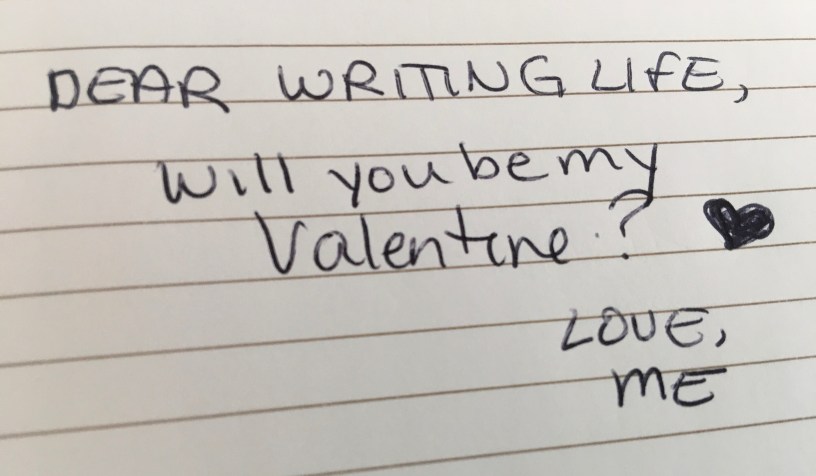 DEAR WRITING LIFE,
Will you be my
Valentine?
LOVE,
ME